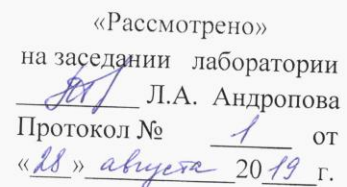 «Рассмотрено»
на заседании лаборатории
Л.А. Андропова
Протокол № 1 от
«28» августа 2019 г.